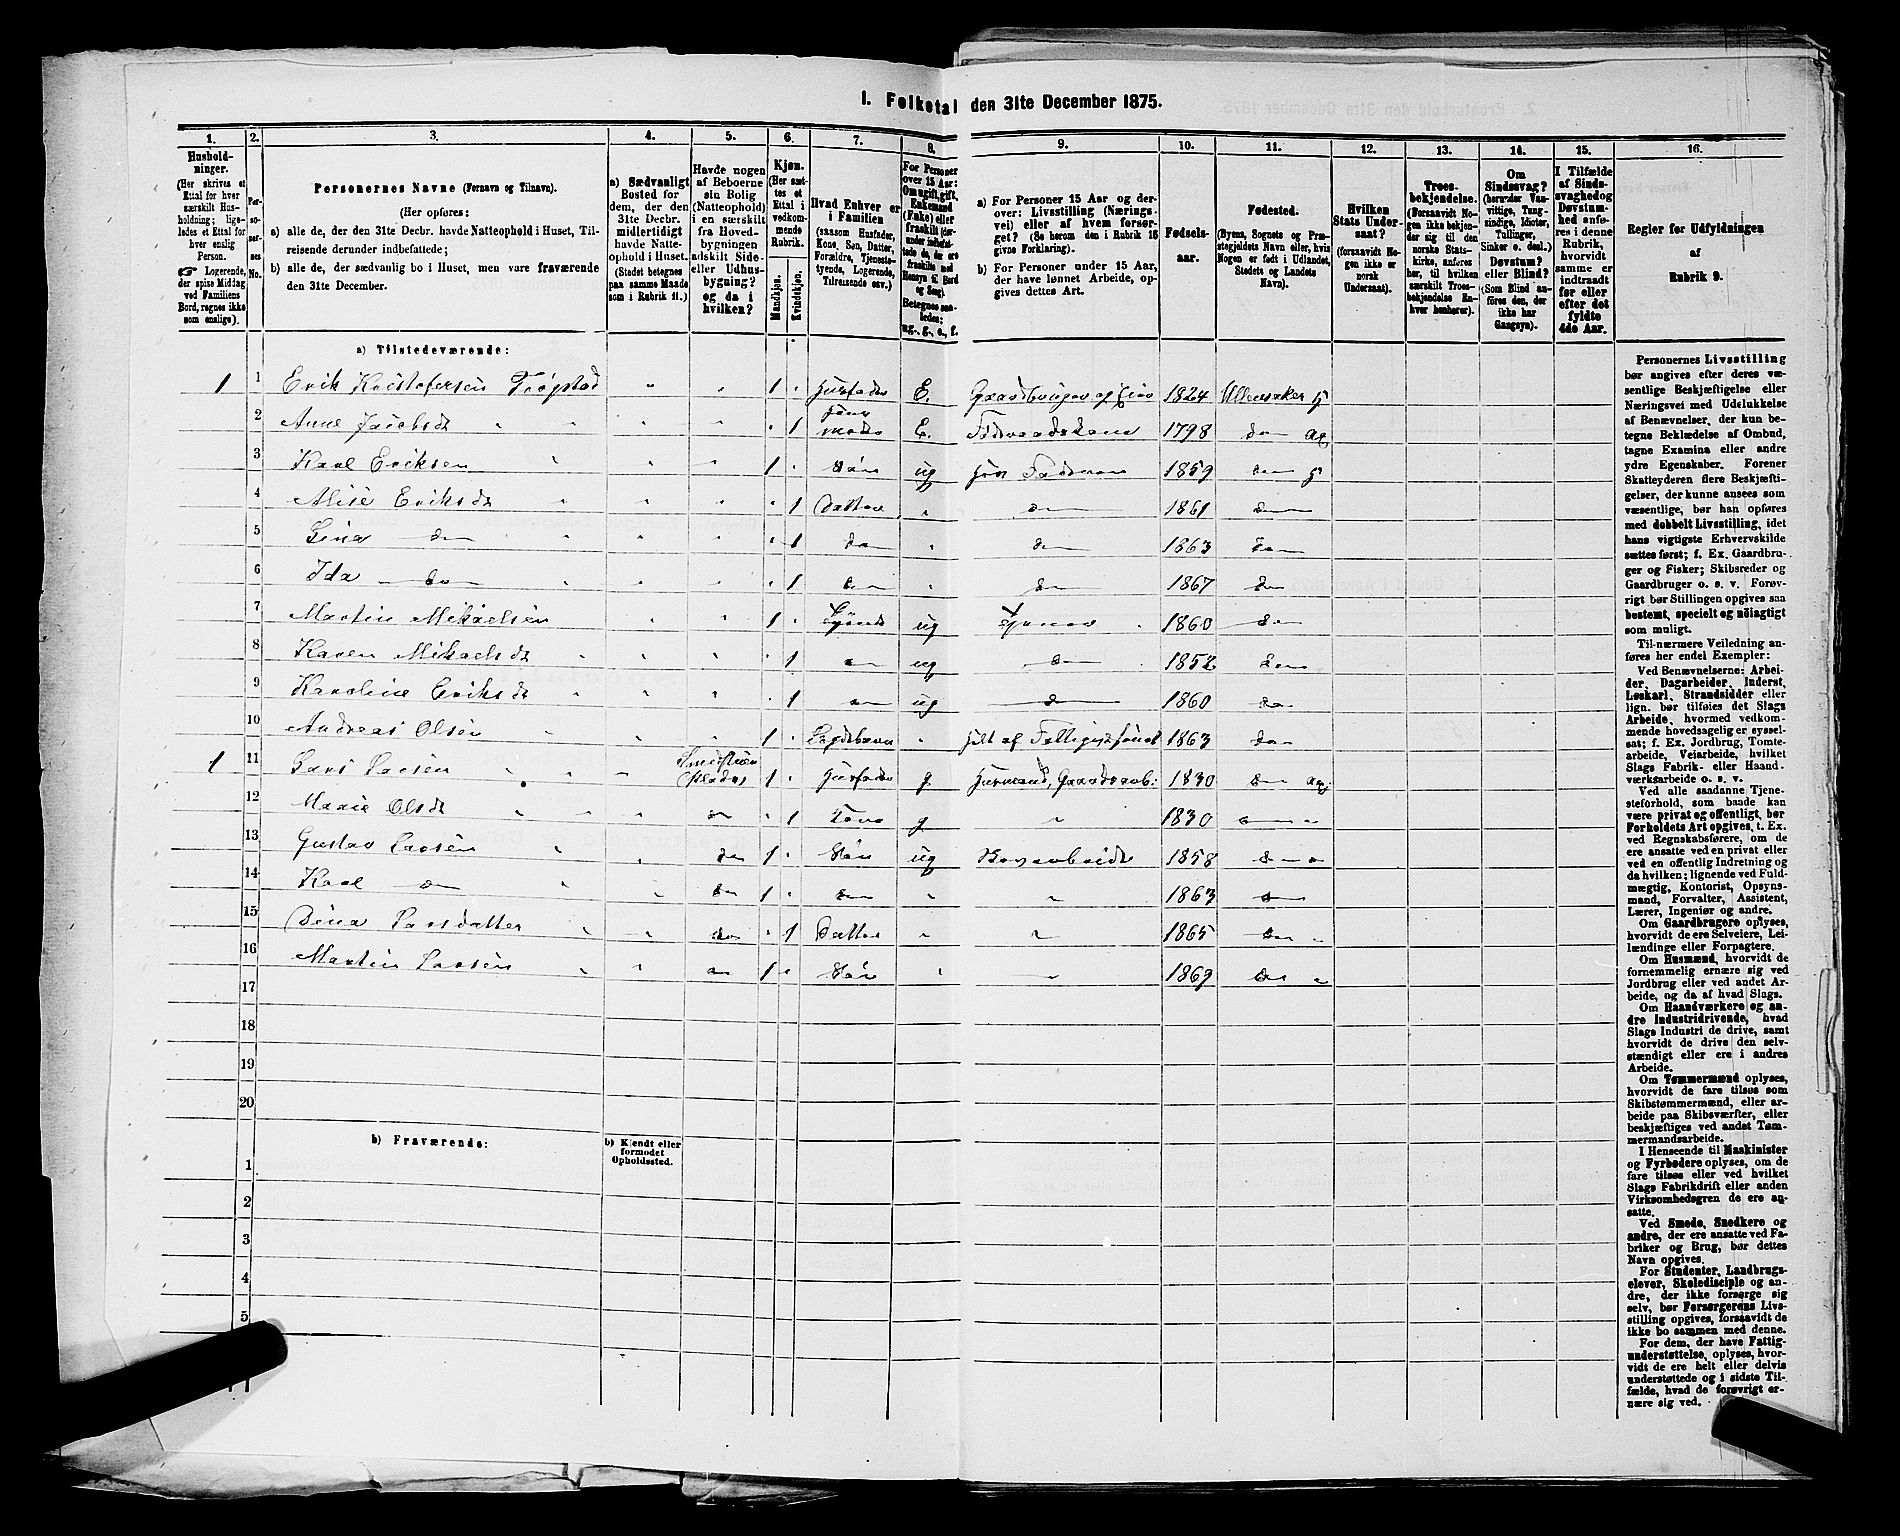 1. Folketal den 31te December 1875.
1. 2. 3. 4. 5. 6. 7. 8. 9. 10. 11. 12. 13. 14. 15. 16.
Hushold-
ninger.
(Her skrives et
Ettal for hver
særskilt Hus-
holdning; lige-
ledes et Ettal
for hver
enslig
Person.
☞ Logerende,
der spise Middag
ved Familiens
Bord, regnes ikke
som enslige).
Per-
so-
ner-
nes
No.
Personernes Navne (Fornavn og Tilnavn).
(Her opføres:
a) alle de, der den 31te Decbr. havde Natteophold i Huset, Til-
reisende derunder indbefattede;
b) alle de, der sædvanlig bo i Huset, men vare fraværende
den 31te December.
a) Sædvanligt
Bosted for
dem, der den
31te Decbr.
midlertidigt
havde Natte-
ophold i Huset.
(Stedet betegnes
paa samme Maade
som i Rubrik 11.)
Havde nogen
af Beboerne
sin Bolig
(Natteophold)
i en særskilt
fra Hoved-
bygningen
adskilt Side-
eller Udhus-
bygning?
og da i
hvilken?
Kjøn.
(Her sæt-
tes et
Ettal i
vedkom-
mende
Rubrik.
Mandkjøn.
Kvindekjøn.
Hvad Enhver er
i Familien
(saasom Husfader,
Kone, Søn, Datter,
Forældre, Tjeneste-
tyende, Logerende,
Tilreisende osv.)
For Personer
over 15 Aar:
Om ugift, gift,
Enkemand
(Enke) eller
fraskilt (der-
under indbefat-
tede de, der ere
fraskilte med
Hensyn til Bord
og Seng).
Betegnes saa-
ledes:
ug., g., e., f.
a) For Personer 15 Aar og der-
over: Livsstilling (Nærings-
vei) eller af hvem forsør-
get? (Se herom den i Rubrik 16
givne Forklaring).
b) For Personer under 15 Aar,
der have lønnet Arbeide, op-
gives dettes Art.
Fødsels-
aar.
Fødested.
(Byens, Sognets og Præ-
stegjeldets Navn eller, hvis
Nogen er født i Udlandet,
Stedets og Landets
Navn).
Hvilken
Stats Under-
saat?
(forsaavidt No-
gen ikke er
norsk
Undersaat).
Troes-
bekjendelse.
(Forsaavidt No-
gen ikke bekjen-
der sig til den
norske Stats-
kirke, anføres
her, til hvilken
særskilt Troes-
bekjendelse En-
hver henhører).
Om
Sindssvag?
(herunder Van-
vittige, Tung-
sindige, Idioter,
Tullinger,
Sinker o. desl.)
Døvstum?
eller Blind?
(Som Blind an-
føres den, der
ikke har
Gangsyn).
I Tilfælde
af Sinds-
svaghed og
Døvstum-
hed anfø-
res i denne
Rubrik,
hvorvidt
samme er
indtraadt
før eller
efter det
fyldte
4de Aar.
Regler for Udfyldningen
af
Rubrik 9.
a) Tilstedeværende:
1 1 Erik Kristofersen Trøgstad " " 1 . Husfader E. Gaardbruger og Eier 1824 Ullensaker
2 Anne Jacobsdt " " " " . 1 Hans Moder E. Føderaadskone 1798 do
3 Karl Eriksen " " " 1 . Søn ug hos Faderen 1859 do
4 Alise Eriksdt " " " . 1 Datter " do 1861 do
5 Lina do " " " . 1 do " do 1863 do
6 Ida do " " " . 1 do " do 1867 do
7 Martin Mikaelsen " " 1 . ug 1860 do
8 Karen Mikaelsdt " " " . 1 do ug do 1852 do
9 Karoline Eriksdt " " " . 1 do ug do 1860 do
10 Andreas Olsen " " " 1 . Lægdsbarn " helt af Fattigvæsenet 1863 do
1 11 Lars Larsen " " " 1 . Husfader g Husmand, Gaardsarb: 1830 do
12 Marie Olsdt " " " do . 1 Kone g " 1830 do "
13 Gustav Larsen " " do 1 . Søn ug 1858 do "
14 Karl do " " do 1 . do " " 1863 do
15 Dina Larsdatter " " do . 1 Datter " " 1865 do "
16 Martin Larsen " " do 1 . Søn " " 1869 do "
17
18
19
20
b) Fraværende:
b) Kjendt eller
formodet
Opholdssted.
1
2
3
4
5
Personernes Livsstilling
bør angives efter deres væ-
sentlige Beskjæftigelse eller
Næringsvei med Udelukkelse
af Benævnelser, der kun be-
tegne Beklædelse af Ombud,
tagne Examina eller andre
ydre Egenskaber. Forener
Skatteyderen flere Beskjæfti-
gelser, der kunne ansees som
væsentlige, bør han opføres
med dobbelt Livsstilling, idet
hans vigtigste Erhvervskilde
sættes først; f. Ex. Gaardbru-
ger og Fisker; Skibsreder og
Gaardbruger o. s. v. Forøv-
rigt bør Stillingen opgives saa
bestemt, specielt og nöiagtigt
som muligt.
Til nærmere Veiledning an-
føres her endel Exempler:
Ved Benævnelserne: Arbei-
der, Dagarbeider, Inderst,
Løskarl, Strandsidder eller
lign. bør tilføies det Slags
Arbeide, hvormed vedkom-
mende hovedsagelig er syssel-
sat; f. Ex. Jordbrug, Tomte-
arbeide, Veiarbeide, hvilket
Slags Fabrik- eller Haand-
værksarbeide o. s. v.
Ved alle saadanne Tjene-
steforhold, som baade kan
være privat og offentligt, bør
Forholdets Art opgives, t. Ex.
ved Regnskabsførere, om de
ere ansatte ved en privat eller
ved en offentlig Indretning og
da hvilken; lignende ved Fuld-
mægtig, Kontorist, Opsyns-
mand, Forvalter, Assistent,
Lærer, Ingeniør og andre.
Om Gaardbrugere oplyses,
hvorvidt de ere Selveiere, Lei-
lændinge eller Forpagtere.
Om Husmænd, hvorvidt de
fornemmelig ernære sig ved
Jordbrug eller ved andet Ar-
beide, og da af hvad Slags.
Om Haandværkere og an-
dre Industridrivende, hvad
Slags Industri de drive, samt
hvorvidt de drive den selv-
stændigt eller ere i andres
Arbeide.
Om Tømmermænd oplyses,
hvorvidt de fare tilsøs som
Skibstømmermænd, eller ar-
beide paa Skibsværfter, eller
beskjæftiges ved andet Tøm-
mermandsarbeide.
I Henseende til Maskinister
og Fyrbødere oplyses, om de
fare tilsøs eller ved hvilket
Slags Fabrikdrift eller anden
Virksomhedsgren de ere an-
satte.
Ved Smede, Snedkere og
andre, der ere ansatte ved Fa-
briker og Brug, bør dettes
Navn opgives.
For Studenter, Landbrugs-
elever, Skoledisciple og an-
dre, der ikke forsørge sig
selv, bør Forsørgerens Livs-
stilling opgives, forsaavidt de
ikke bo sammen med denne.
For dem, der have Fattig-
understøttelse, oplyses, hvor-
vidt de ere helt eller delvis
understøttede og i sidste Til-
fælde, hvad de forøvrigt er-
nære sig ved.